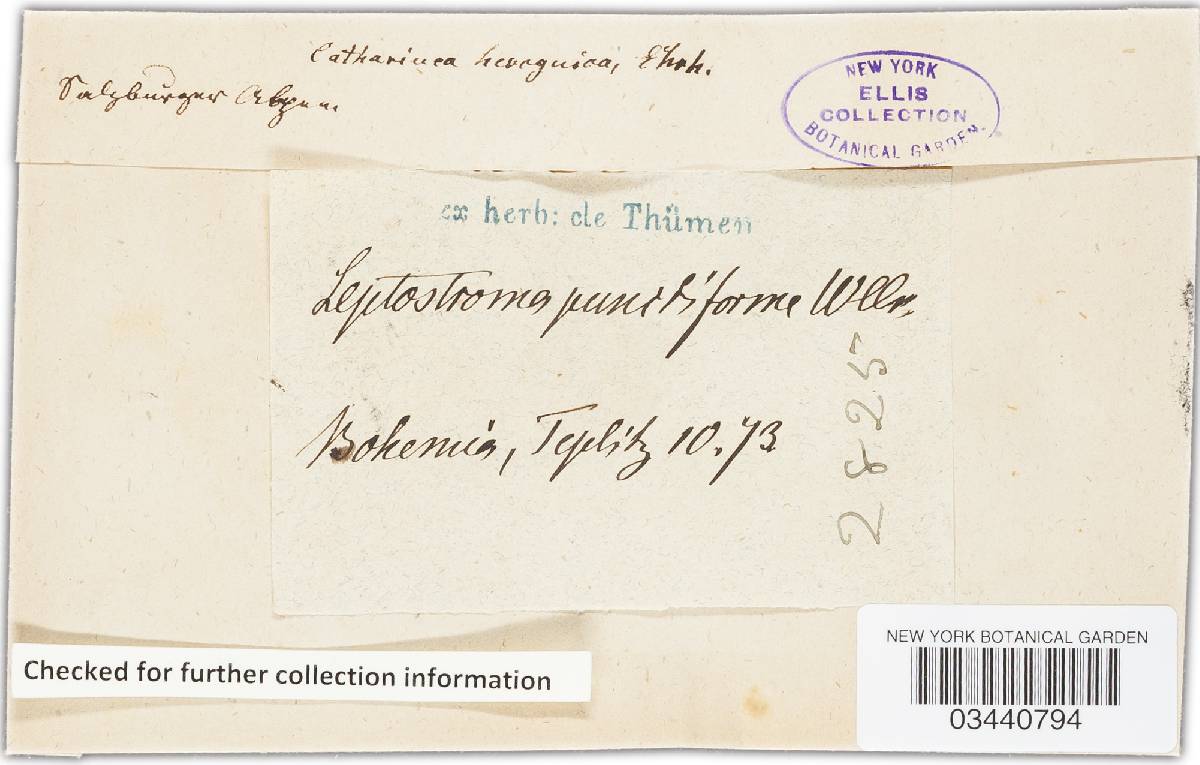 Catharinea hercynica, Ehrh.
Salzburger Alpen
NEW YORK
ELLIS
COLLECTION
BOTANICAL GARDEN.
ex herb: de Thümen
Leptostroma punctiforme Wllr.
Bohemia, Teplitz 10.73
2825
Checked for further collection information
NEW YORK BOTANICAL GARDEN
03440794